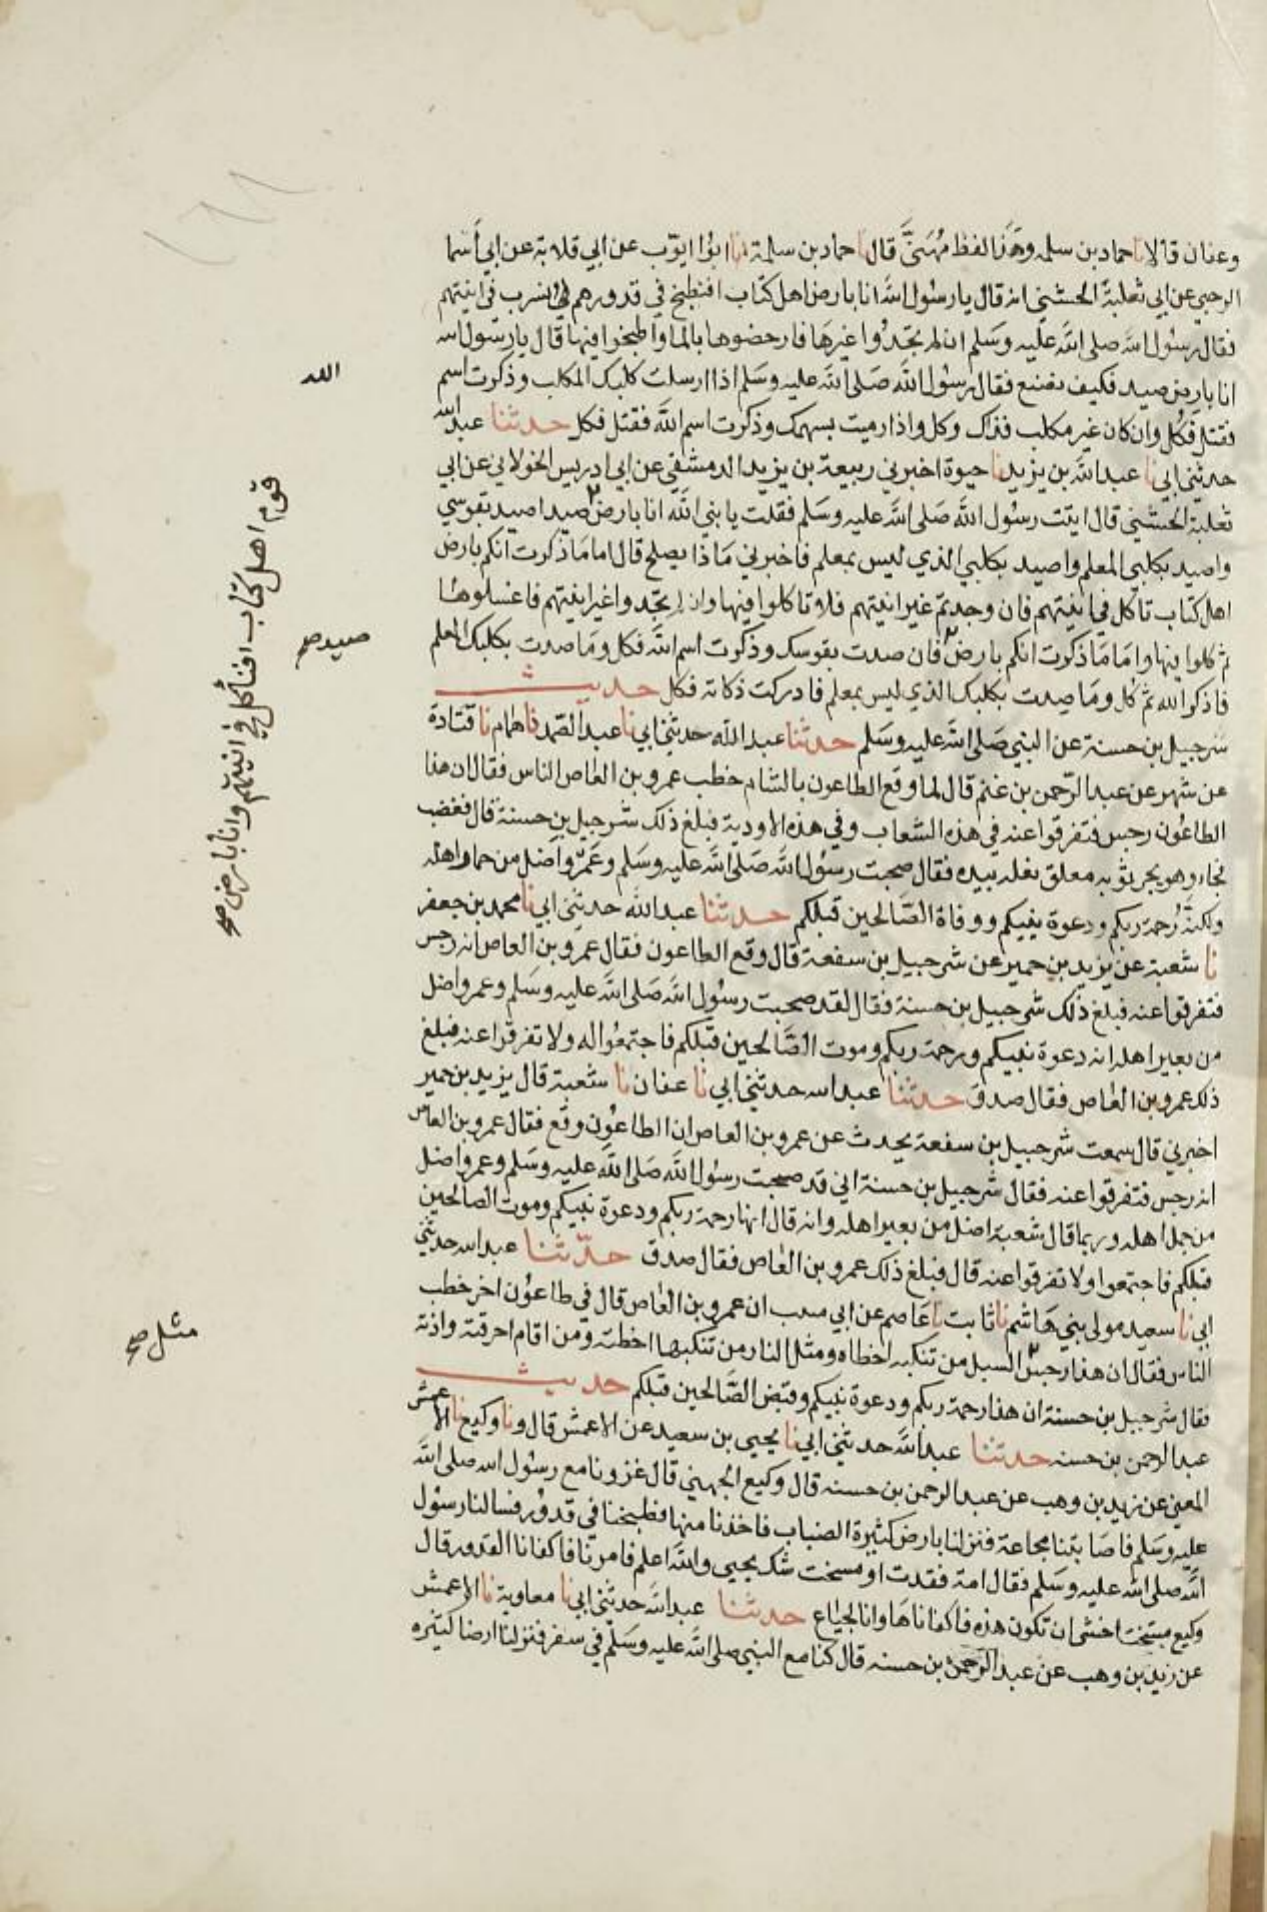 وعفان قالا نا حماد بن سلمه وهذا لفظ مهنى قال نا حماد بن سلمة انا ايوب عن ابي قلابة عن ابي أسما
الرحبي عن ابي ثعلبة الخشني انه قال يا رسول الله انا بارض اهل كتاب افنطبخ في قدورهم ونشرب في انيتهم
فقال رسول الله صلى الله عليه وسلم ان لم تجدوا غيرها فارحضوها بالما واطبخوا فيها قال يا رسول الله
انا بارض صيد فكيف نصنع فقال رسول الله صلى الله عليه وسلم اذا ارسلت كلبك المكلب وذكرت اسم
الله
فقتل فكل وان كان غير مكلب فذك وكل واذا رميت بسهمك وذكرت اسم الله فقتل فكل حدثنا عبد الله
حدثني ابي نا عبد الله بن يزيد نا حيوة اخبرني ربيعة بن يزيد الدمشقي عن ابي ادريس الخولاني عن ابي
ثعلبة الخشني قال اتيت رسول الله صلى الله عليه وسلم فقلت يا نبي الله انا بارض صيد اصيد بقوسي
قوم اهل كتاب افنأكل في انيتهم وانا بارض صح
واصيد بكلبي المعلم واصيد بكلبي الذي ليس بمعلم فاخبرني ماذا يصلح قال اما ما ذكرت انكم بارض
اهل كتاب تاكل في انيتهم فان وجدتم غير انيتهم فلا تاكلوا فيها وان لم تجدوا غير انيتهم فاغسلوها
ثم كلوا فيها واما ما ذكرت انكم بارض فان صدت بقوسك وذكرت اسم الله فكل وما صدت بكلبك المعلم
صيد صح
فاذكر الله ثم كل وما صدت بكلبك الذي ليس بمعلم فادركت ذكاته فكل حديث
شرحبيل بن حسنة عن النبي صلى الله عليه وسلم حدثنا عبد الله حدثني ابي نا عبد الصمد نا همام نا قتادة
عن شهر عن عبد الرحمن بن غنم قال لما وقع الطاعون بالشام خطب عمرو بن العاص الناس فقال ان هذا
الطاعون رجس فتفرقوا عنه في هذه الشعاب وفي هذه الاودية فبلغ ذلك شرحبيل بن حسنة قال فغضب
فجاء وهو يجر ثوبه معلق نعله بيده فقال صحبت رسول الله صلى الله عليه وسلم وعمرو اضل من حمار اهله
ولكنه رحمة ربكم ودعوة نبيكم ووفاة الصالحين قبلكم حدثنا عبد الله حدثني ابي نا محمد بن جعفر
نا شعبة عن يزيد بن خمير عن شرحبيل بن سفعة قال وقع الطاعون فقال عمرو بن العاص انه رجس
فتفرقوا عنه فبلغ ذلك شرحبيل بن حسنة فقال لقد صحبت رسول الله صلى الله عليه وسلم وعمرو اضل
من بعير اهله انه دعوة نبيكم ورحمة ربكم وموت الصالحين قبلكم فاجتمعوا له ولا تفرقوا عنه فبلغ
ذلك عمرو بن العاص فقال صدق حدثنا عبد الله حدثني ابي نا عفان نا شعبة قال يزيد بن خمير
اخبرني قال سمعت شرحبيل بن سفعة يحدث عن عمرو بن العاص ان الطاعون وقع فقال عمرو بن العاص
انه رجس فتفرقوا عنه فقال شرحبيل بن حسنة اني قد صحبت رسول الله صلى الله عليه وسلم وعمرو اضل
من جمل اهله وربما قال شعبة اضل من بعير اهله وانه قال انها رحمة ربكم ودعوة نبيكم وموت الصالحين
قبلكم فاجتمعوا ولا تفرقوا عنه قال فبلغ ذلك عمرو بن العاص فقال صدق حدثنا عبد الله حدثني
ابي نا سعيد مولى بني هاشم نا ثابت نا عاصم عن ابي منيب ان عمرو بن العاص قال في طاعون اخر خطب
الناس فقال ان هذا رجس السيل من تنكبه اخطاه ومثل النار من تنكبها اخطته ومن اقام احرقته واذته
مثل صح
فقال شرحبيل بن حسنة ان هذا رحمة ربكم ودعوة نبيكم وقبض الصالحين قبلكم حديث
عبد الرحمن بن حسنه حدثنا عبد الله حدثني ابي نا يحيى بن سعيد عن الاعمش قال ونا وكيع نا الاعمش
المعنى عن زيد بن وهب عن عبد الرحمن بن حسنه قال وكيع الجهني قال غزونا مع رسول الله صلى الله
عليه وسلم فاصابتنا مجاعة فنزلنا بارض كثيرة الضباب فاخذنا منها فطبخنا في قدور فسالنا رسول
الله صلى الله عليه وسلم فقال امة فقدت او مسخت شك يحيى والله اعلم فامرنا فاكفانا القدور قال
وكيع مسخت اخشى ان تكون هذه فاكفاناها وانا لجياع حدثنا عبد الله حدثني ابي نا معاوية نا الاعمش
عن زيد بن وهب عن عبد الرحمن بن حسنه قال كنا مع النبي صلى الله عليه وسلم في سفر فنزلنا ارضا كثيره